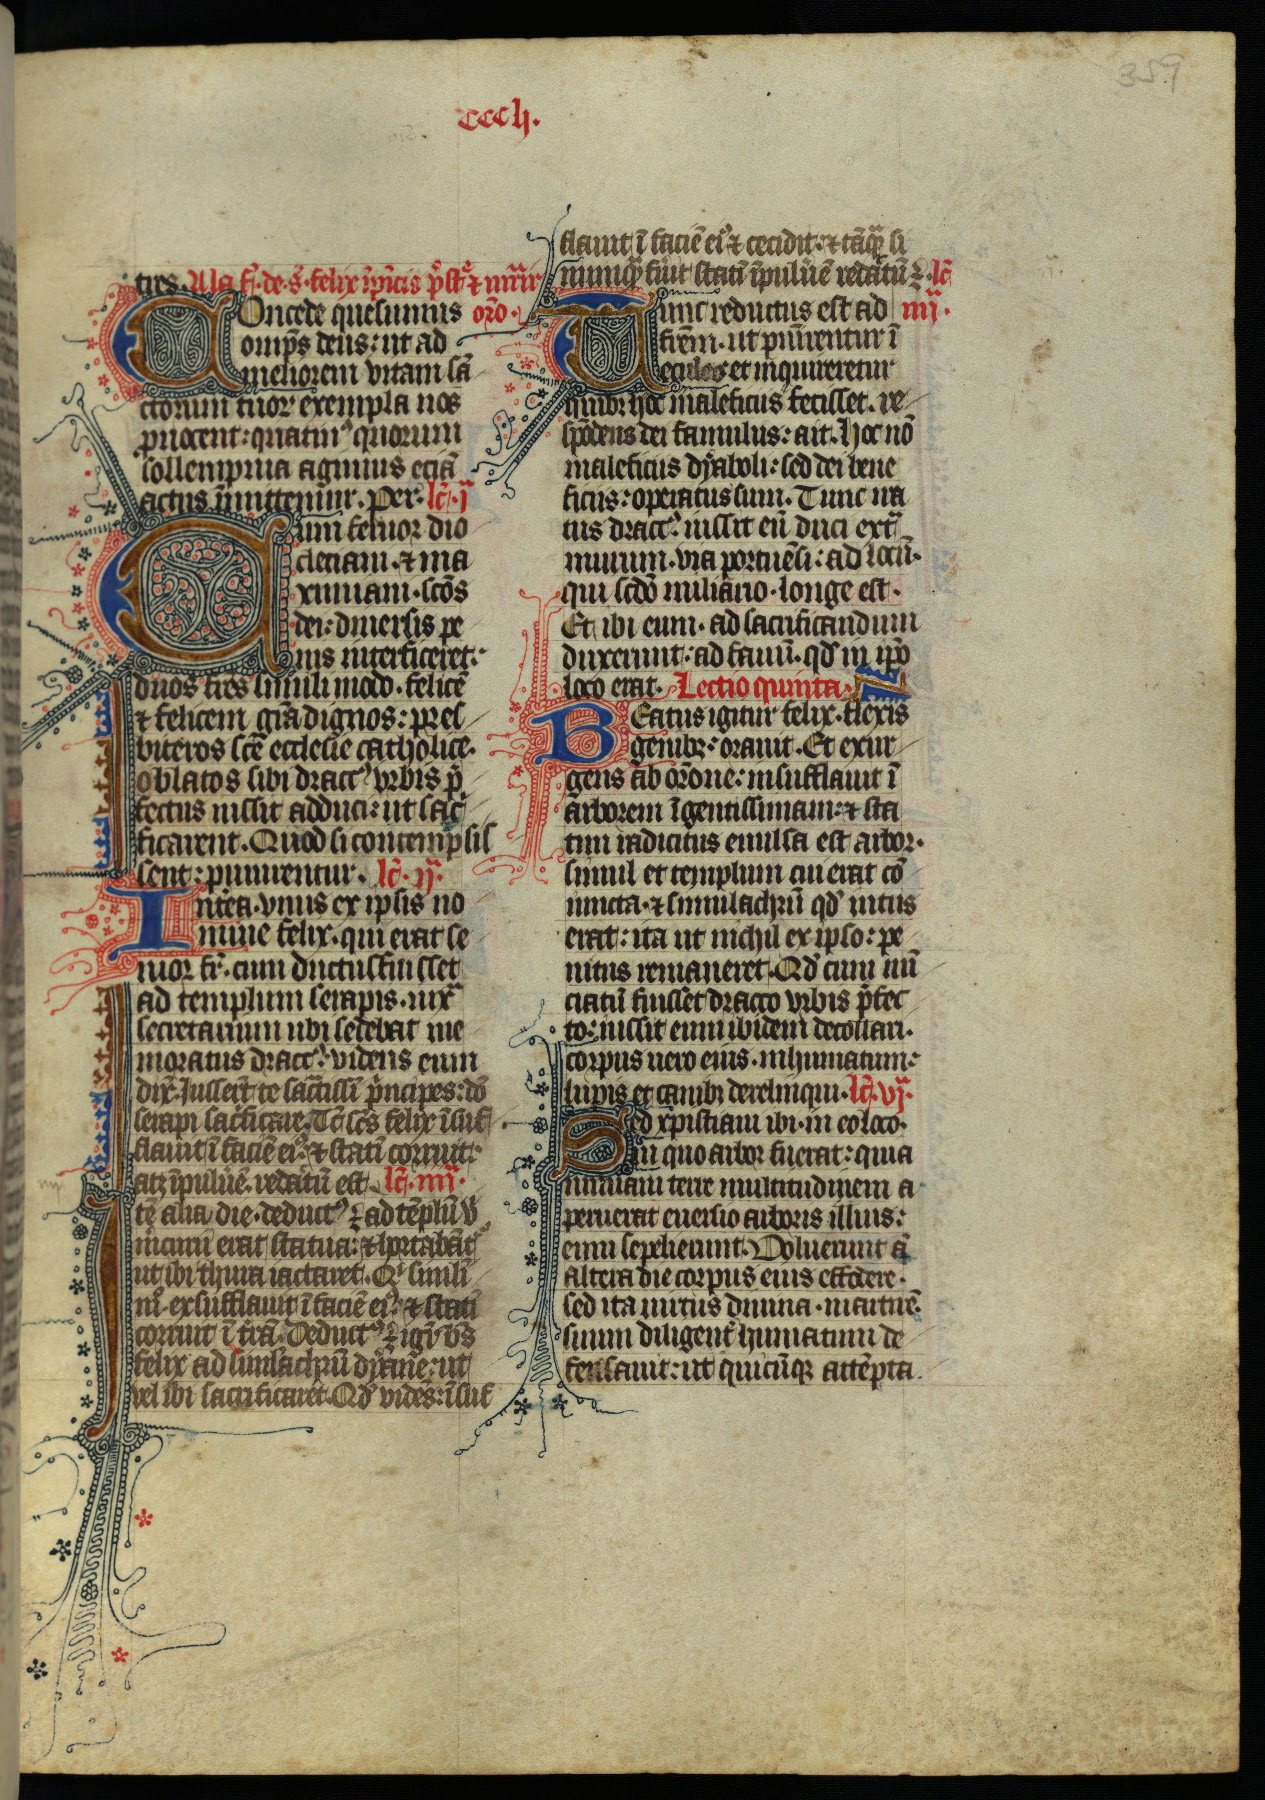 359
cccli.
tres. Alia f. de. s. felix ī pīcis p̄sb̄r̄ & mr̄ir
Oncede quesumus orō.
omīps deus: ut ad
meliorem vitam sā
ctorum tuoꝝ exempla nos
ꝓuocent: quatinꝰ quorum
sollempnia agimus eciā
actus īmittemur. Per. lc̄. j
um feruor dio
cleciani. & ma
ximiani. scōs
dei: diuersis pe
nis interficeret:
duos fr̄es simili modo. felicē
& felicem gr̄a dignos: presƀ
biteros scē ecclesie catholice.
oblatos sibi draccꝰ vrbis p̄
fectus iussit adduci: ut sac̄
ficarent. Quod si contempsis
sent: punirentur. lc̄. ij.
nt̄ea. vnus ex ipsis no
mine felix. qui erat se
nior fr̄. cum ductus fuisset
ad templum serapis. iux̄
secretarium ubi sedebat me
moratus draccꝰ. videns eum
dix̄. Jusser̄t te sac̄tissī p̄ncipes: dō
serapi sac̄ficare. Tc̄ scs̄ felix īsuf
flauit ī faciē eiꝰ. & statī corruit:
atꝫ ī puluē. redactū est. lc̄. iij.
tē alia die. deductꝰ ē ad tēplū
mercurii erat statua: & hortabāt
ut ibi thura iactaret. Qͥ simili
mͦ. exsufflauit ī faciē eiꝰ. & statī
corruit ī t̄rā. Deductꝰ ē igͥ bs̄
felix ad simlachrū dyane: ut
vel ibi sacrificaret. Qd̄ vidēs: īsuf
flauit ī faciē eiꝰ & cecidit: & tāq̄ si
nunqͣ fuit statī ī puluē redactū ē. lc̄
unc reductus est ad iiij.
firēm. ut puniretur ī
eculeo et inquireretur
quibꝫ hoc maleficus fecisset. re
spōdens dei famulus: ait. hoc nō
maleficiis dyaboli: sed dei bene
ficiis: operatus sum. Tunc ira
tus draccꝰ. iussit eū duci ext̄
murum. via portuēsi: ad locū.
qui scdō miliario. longe est.
Et ibi eum. ad sacrificandum
duxerunt: ad fanū. qd̄ in ipō
loco erat. Lectio quinta.
BEatus igitur felix. flexis
genibꝫ: orauit. Et exur
gens ab orōne: insufflauit ī
arborem īgentissimam: & sta
tim radicitus euulsa est arbor.
simul et templum cui erat cō
iuncta. & simulachrū qd̄ intus
erat: ita ut nichil ex ipso: pe
nitus remaneret. Qd̄ cum nū
ciatū fuisset dracco vrbis p̄fec
to: iussit eum ibidem decollari.
corpus uero eius. inhumatum:
lupis et canibꝫ derelinqui. lc̄. vj.
Sed xpistiani ibi. in eo loco.
in quo arbor fuerat: quia
nimiam terre multitudinem a
peruerat euersio arboris illius:
eum sepelierunt. Voluerunt aū
altera die corpus eius effodere.
sed ita uirtus diuina. martirē.
suum diligent̄ humatum de
fensauit: ut quicūqꝫ attēpta